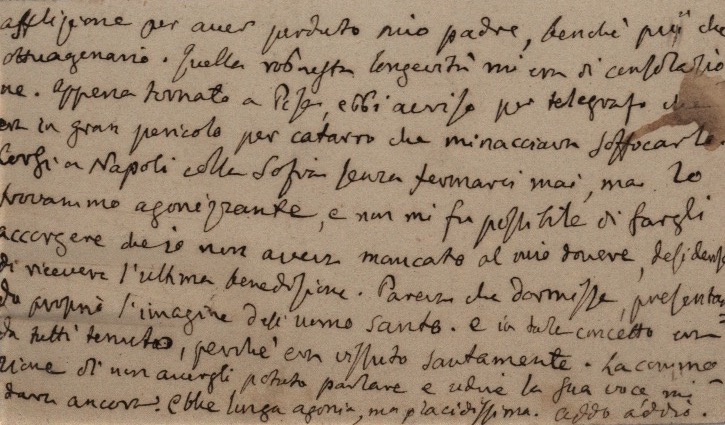 afflizione per aver perduto mio padre, benchè più che
ottuagenario. Quella robusta longevità mi era di consolazio
ne. Appena tornato a Pisa, ebbi avviso per telegrafo che
era in gran pericolo per catarro che minacciava soffocarlo.
Corsi a Napoli colla Sofia senza fermarci mai, ma lo
trovammo agonizzante, e non mi fu possibile di fargli
accorgere che io non aveva mancato al mio dovere,
di ricevere l'ultima benedizione. Pareva che dormisse, presentan
do proprio l'imagine dell'uomo santo. e in tale concetto era
da tutti tenuto, perchè era vissuto santamente. La commo
zione di non avergli potuto parlare e udire la sua voce mi
dura ancora. Ebbe lunga agonia, ma placidissima. addo addio.